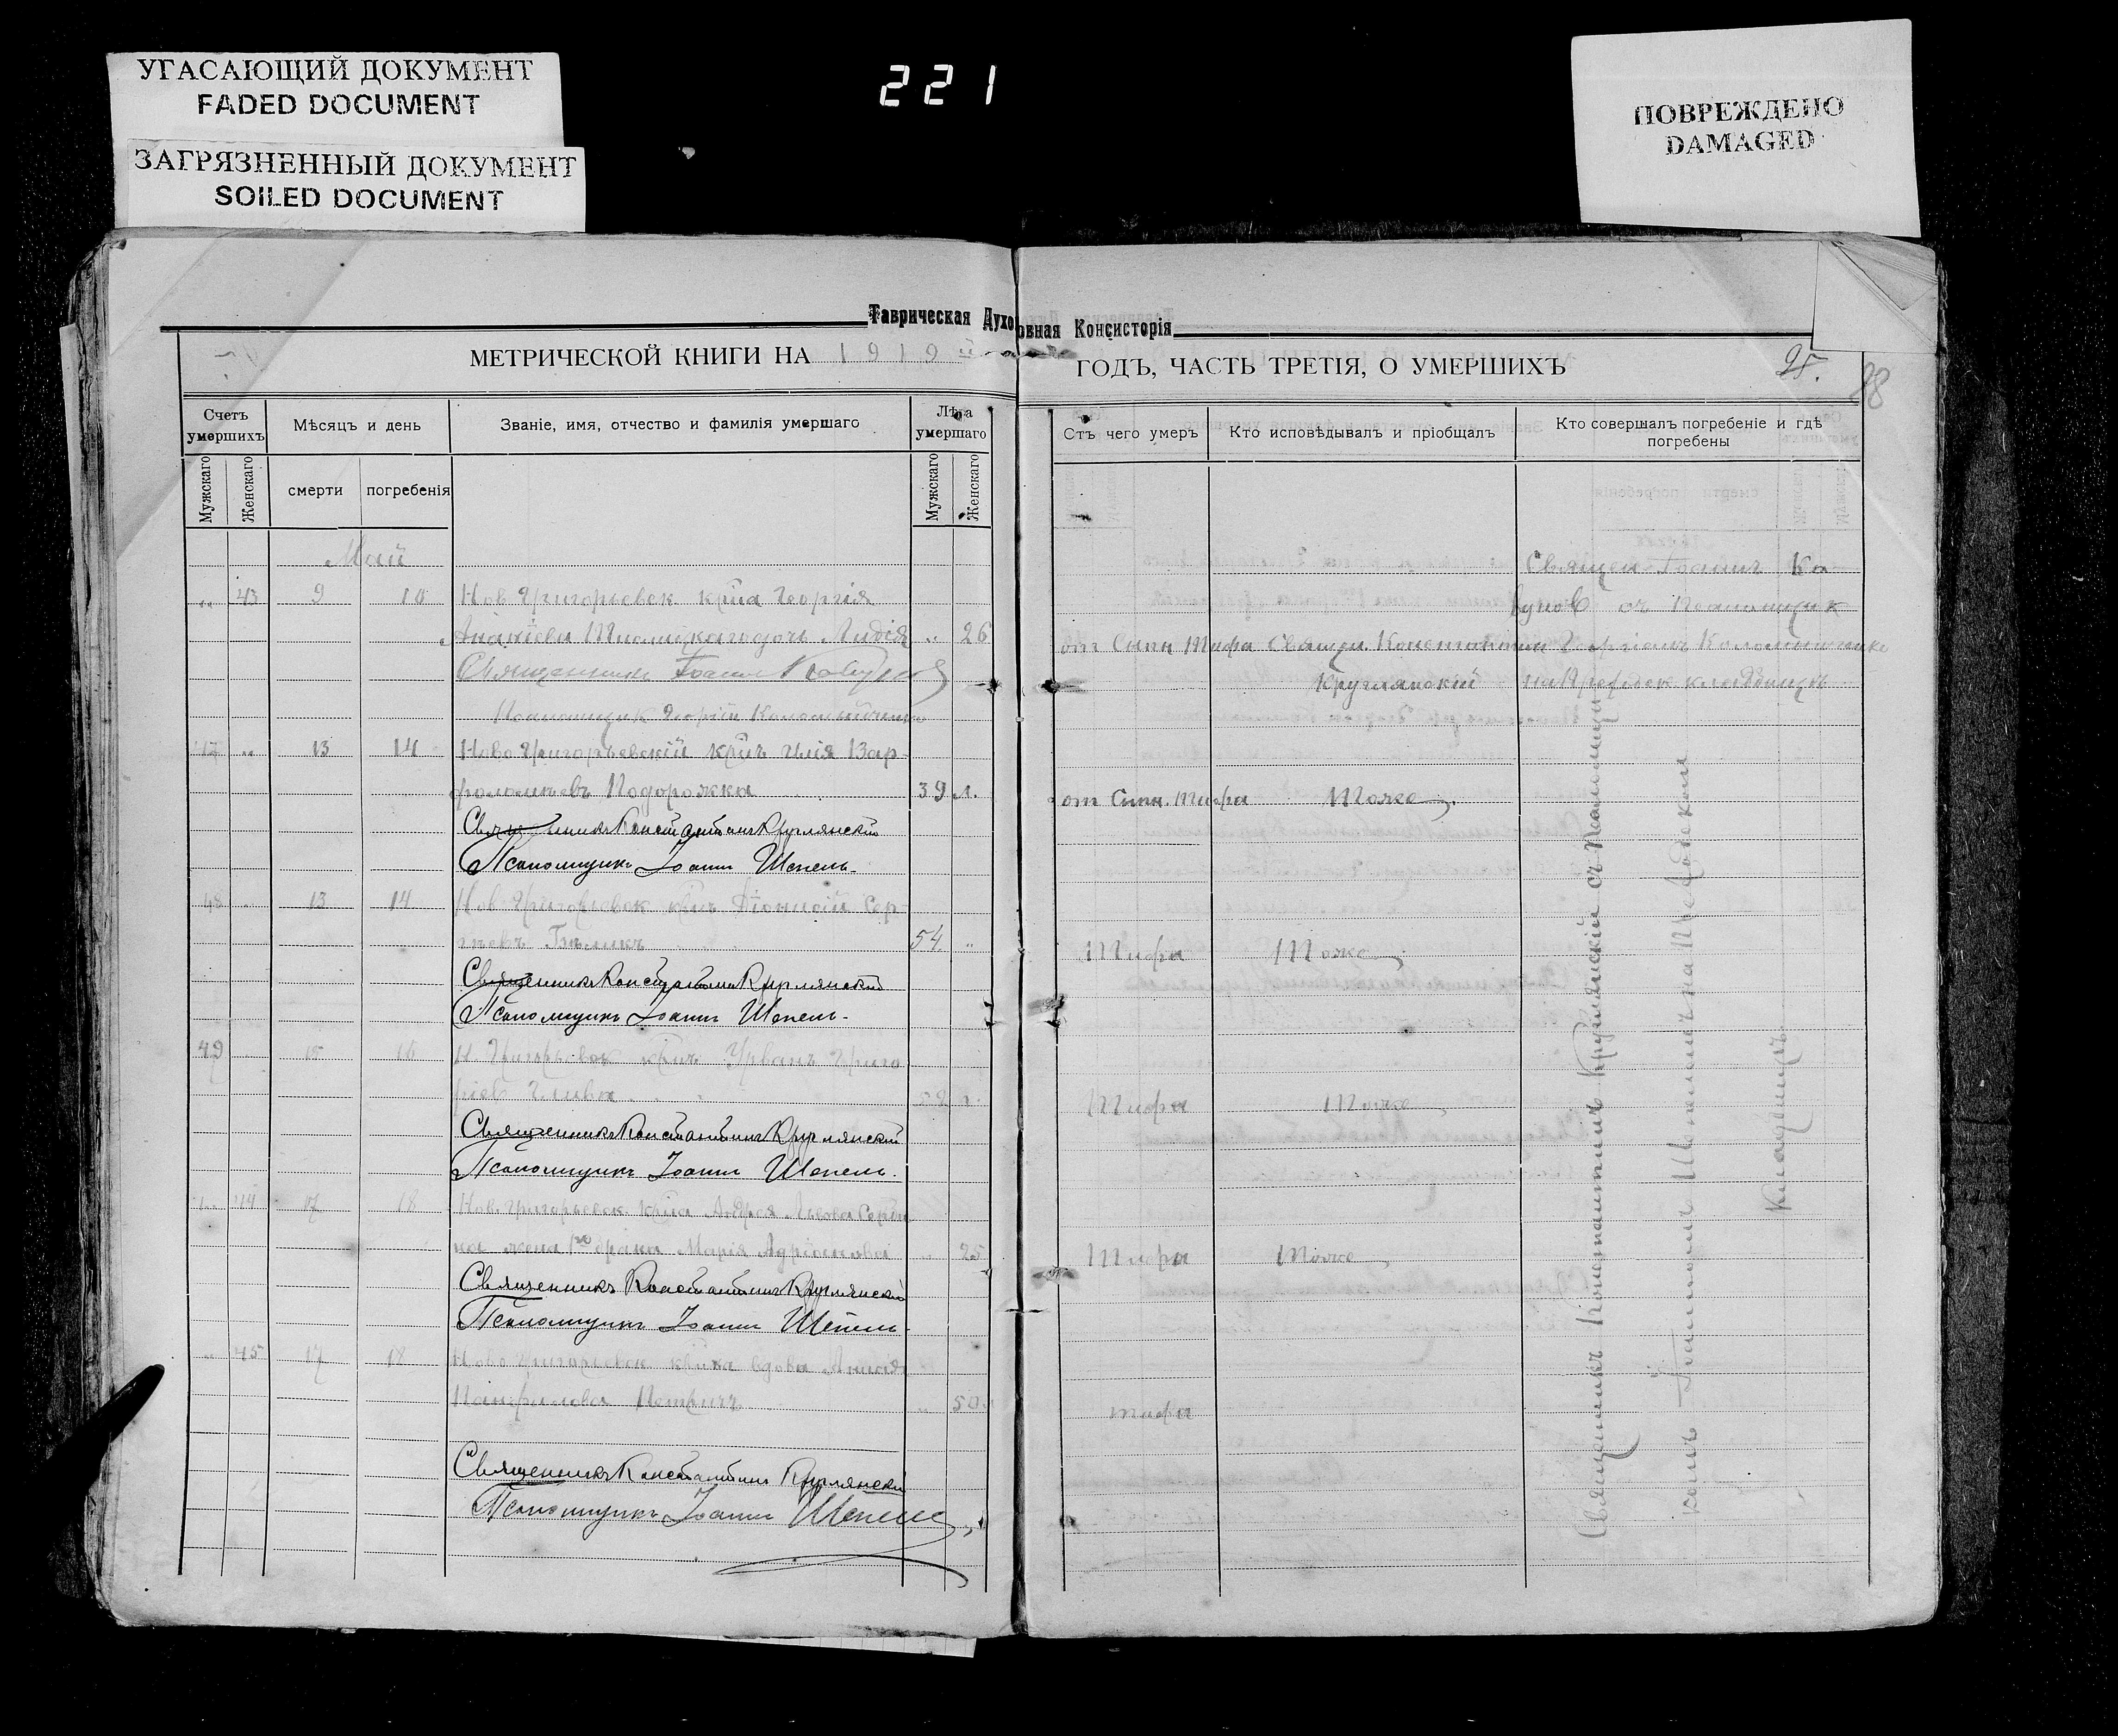 УГАСАЮЩИЙ ДОКУМЕНТ
FADED DOCUMENT
ЗАГРЯЗНЕННЫЙ ДОКУМЕНТ
SOILED DOCUMENT
221
ПОВРЕЖДЕНО
DAMAGED
Таврическая Духовная Консисторія
МЕТРИЧЕСКОЙ КНИГИ НА 1919 й ГОДЪ, ЧАСТЬ ТРЕТІЯ, О УМЕРШИХЪ
25.
Счетъ умершихъ
Мѣсяцъ и день
Званіе, имя, отчество и фамилія умершаго
Лѣта умершаго
Отъ чего умеръ
Кто исповѣдывалъ и пріобщалъ
Кто совершалъ погребеніе и гдѣ погребены
Мужскаго
Женскаго
смерти
погребенія
Мужскаго
Женскаго
Май
Священ. Іоаннъ Ко-
„ 43 9 10 Нов Григорьевск кр̃на Георгія
вуновъ съ Псаломщик
дочь Лидія „ 26 от Сыпн Тифа Священ. Константин Георгіемъ
Священникъ Іоаннъ
Круглянскій на Приходск кладбищѣ
Псаломщик Георгій
47 „ 13 14 Ново Григорьевскій кр̃нъ Илія Вар-
фоломѣевъ Подорожка 39 л. от Сыпн. Тифа Тоже
Священникъ Константинъ Круглянскій
Псаломщикъ Іоаннъ Шепель
48 „ 13 14 Нов Григорьевск кр̃нъ Діонисій Сер-
гѣевъ 54 „ Тифа Тоже
Священникъ Константинъ Круглянскій
Псаломщикъ Іоаннъ Шепель
49 15 16 Н. Григорьевск кр̃нъ Урванъ Григо
ріев Тифа Тоже
Священникъ Константинъ Круглянскій
Псаломщикъ Іоаннъ Шепель
„ 44 17 18 Нов. Григорьевск кр̃на Андрея Львова
жена 1го брака Марія Адріанова „ 25 Тифа Тоже
Священникъ Константинъ Круглянскій
Псаломщикъ Іоаннъ Шепель
„ 45 17 18 Ново Григорьевск вдова Анисія
Панфилова „ 50 тифа
Священникъ Константинъ Круглянскій
Псаломщикъ Іоаннъ Шепель
Священникъ Константинъ Круглянскій съ Псаломщи
комъ Іоанномъ Шепелемъ на Приходском
кладбищѣ